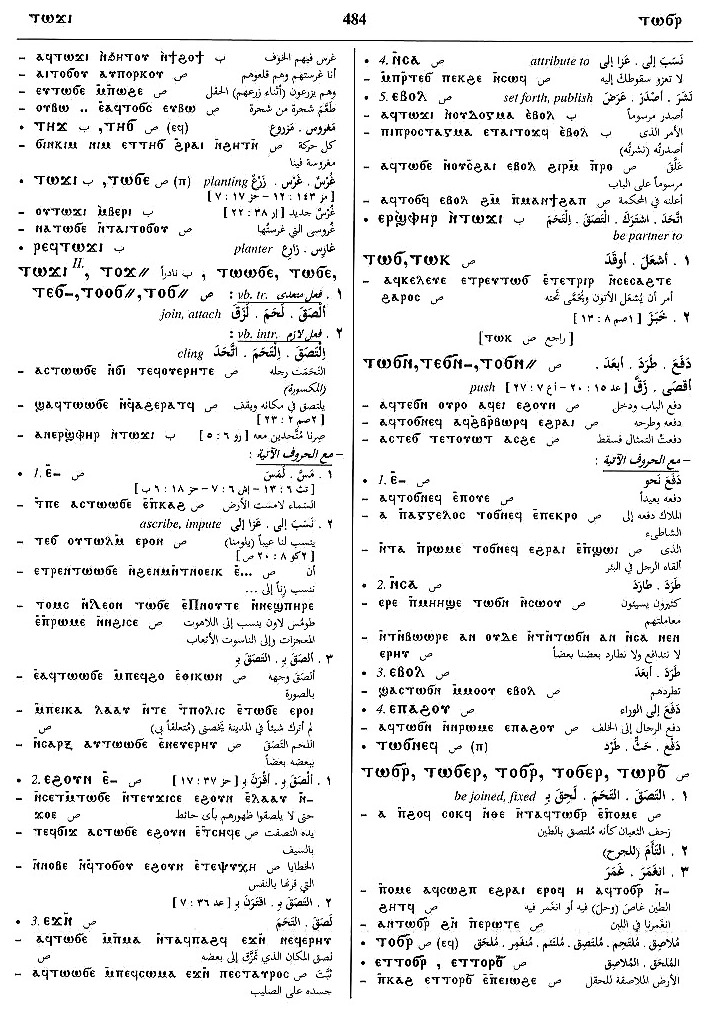 ⲧⲱϫⲓ
484
ⲧⲱϭⲣ
– ⲁϥⲧⲱϫⲓ ⲛ̀ϧⲏⲧⲟⲩ ⲛ̀ϯϩⲟϯ ب غرس فيهم الخوف
– ⲁⲓⲧⲟϭⲟⲩ ⲁⲩⲡⲟⲣⲕⲟⲩ ص أنا غرستهم وهم قلعوهم
– ⲉⲩⲧⲱϭⲉ ⲙ̄ⲡⲱϩⲉ ص وهم يزرعون (أثناء زرعهم) الحقل
– ⲟⲩⲃⲱ .. ⲉ̄ⲁϥⲧⲟϭⲥ ⲉⲩⲃⲱ ص طعَّم شجرة من شجرة
• ⲧⲏϫ ب ,ⲧⲏϭ ص (eq) مغروس . مزروع
– ϭⲓⲛⲕⲓⲙ ⲛⲓⲙ ⲉⲧⲧⲏϭ ϩⲣⲁⲓ ⲛ̄ϩⲏⲧⲛ̄ ص كل حركة
مغروسة فينا
• ⲧⲱϫⲓ ب ,ⲧⲱϭⲉ ص (ⲡ) planting غَرْسٌ . غَرَسَ . زَرْعٌ
[مز ١٤٣ : ١٢ – حز ١٧ : ٧]
– ⲟⲩⲧⲱϫⲓ ⲙ̀ⲃⲉⲣⲓ ب غَرْسٌ جديد [إر ٣٨ : ٢٢]
– ⲛⲁⲧⲱϭⲉ ⲛ̄ⲧⲁⲓⲧⲟϭⲟⲩ ص غروسي التي غرستُها
• ⲣⲉϥⲧⲱϫⲓ ب planter غارِس . زارِع
ⲧⲱϫⲓ II. , ⲧⲟϫ// ب نادراً , ⲧⲱⲱϭⲉ, ⲧⲱϭⲉ,
ⲧⲉϭ-,ⲧⲟⲟϭ//,ⲧⲟϭ// ص vb. tr. : فعل متعدى . ١
join, attach ألصَقَ . لَحَمَ . لَزَقَ
vb. intr. : فعل لازم . ٢
cling التَصَقَ . التَحَمَ . اتَّحَدَ
– ⲁⲥⲧⲱⲱϭⲉ ⲛ̄ϭⲓ ⲧⲉϥⲟⲩⲉⲣⲏⲧⲉ ص التحَمَت رجله
(المكسورة)
– ϣⲁϥⲧⲱⲱϭⲉ ⲛ̄ϥⲁϩⲉⲣⲁⲧϥ ص يلتصق في مكانه ويقف
[٢صم ٢ : ٢٣]
– ⲁⲛⲉⲣϣ̀ⲫⲏⲣ ⲛ̀ⲧⲱϫⲓ ب صِرنا متَّحدين معه [رو ٦ : ٥]
– مع الحروف الآتية :
• 1. ⲉ̄- ص ١ . مَسَّ . لَمَسَ
[تث ٦ : ١٣ – إش ٦ : ٧ – حز ١٨ : ٦ ب]
– ⲧ̄ⲡⲉ ⲁⲥⲧⲱⲱϭⲉ ⲉ̄ⲡⲕⲁϩ ص السماء لامست الأرض
ascribe, impute ٢ . نَسَبَ إلى . عَزَا إلى
– ⲧⲉϭ ⲟⲩⲧⲱⲗⲙ̄ ⲉⲣⲟⲛ ص ينسب لنا عيباً (يلومنا)
[٢كو ٨ : ٢٠ ص]
– ⲉⲧⲣⲉⲛⲧⲱⲱϭⲉ ⲛ̄ϩⲉⲛⲙⲛ̄ⲧⲛⲟⲉⲓⲕ ⲉ̄... ص أن
ننسب زناً إلى ...
– ⲧⲟⲙⲥ ⲛ̄ⲗⲉⲱⲛ ⲧⲱϭⲉ ⲉ̄ⲡⲛⲟⲩⲧⲉ ⲛ̄ⲛⲉϣⲡⲏⲣⲉ
ⲉ̄ⲡⲣⲱⲙⲉ ⲛ̄ⲛϩⲓⲥⲉ ص طومُس لاون ينسب إلى اللاهوت
المعجزات وإلى الناسوت الأتعاب
٣ . ألصَقَ بـِ . التَصَقَ بـِ
– ⲉ̄ⲁϥⲧⲱⲱϭⲉ ⲙ̄ⲡⲉϥϩⲟ ⲉ̄ⲑⲓⲕⲱⲛ ص ألصق وجهه
بالصورة
– ⲙ̄ⲡⲉⲓⲕⲁ ⲗⲁⲁⲩ ⲛ̄ⲧⲉ ⲧⲡⲟⲗⲓⲥ ⲉ̄ⲧⲱϭⲉ ⲉⲣⲟⲓ
ص لم أترك شيئاً في المدينة يختص بي (متعلقاً بي)
– ⲛ̄ⲥⲁⲣⲝ ⲁⲩⲧⲱⲱϭⲉ ⲉ̄ⲛⲉⲩⲉⲣⲏⲩ ص اللحم التَصَقَ
ببعضه بعضاً
• 2. ⲉϩⲟⲩⲛ ⲉ̄- ص ١ . ألصَقَ بـِ . أقرَنَ بـِ [حز ٣٧ : ١٧]
– ⲛ̄ⲥⲉⲧⲙ̄ⲧⲱϭⲉ ⲛ̄ⲧⲉⲩϫⲓⲥⲉ ⲉϩⲟⲩⲛ ⲉ̄ⲗⲁⲁⲩ ⲛ̄-
ϫⲟⲉ ص حتى لا يلصقوا ظهورهم بأي حائط
– ⲧⲉϥϭⲓϫ ⲁⲥⲧⲱϭⲉ ⲉϩⲟⲩⲛ ⲉ̄ⲧⲥⲏϥⲉ ص يده التصقت
بالسيف
– ⲛ̄ⲛⲟⲃⲉ ⲛ̄ϥⲧⲟϭⲟⲩ ⲉϩⲟⲩⲛ ⲉ̄ⲧⲉⲯⲩⲭⲏ ص الخطايا
التي قرنها بالنفس
٢ . التَصَقَ بـِ . اقترَنَ بـِ [عد ٣٦ : ٧]
• 3. ⲉϫⲛ̄ ص لَصِقَ . التَحَمَ
– ⲁϥⲧⲱϭⲉ ⲙ̄ⲡⲙⲁ ⲛ̄ⲧⲁϥⲡⲁϩϥ ⲉϫⲛ̄ ⲛⲉϥⲉⲣⲏⲩ
ص لصق المكان الذي مُزِّق إلى بعضه
– ⲁϥⲧⲱⲱϭⲉ ⲙ̄ⲡⲉϥⲥⲱⲙⲁ ⲉϫⲛ̄ ⲡⲉⲥⲧⲁⲩⲣⲟⲥ ص ثبَّتَ
جسده على الصليب
• 4. ⲛ̄ⲥⲁ ص attribute to نَسَبَ إلى . عَزَا إلى
– ⲙ̄ⲡⲣ̄ⲧⲉϭ ⲡⲉⲕϩⲉ ⲛ̄ⲥⲱϥ ص لا تعزو سقوطك إليه
• 5. ⲉⲃⲟⲗ ص set forth, publish نَشَرَ . أصدَرَ . عَرَضَ
– ⲁϥⲧⲱϫⲓ ⲛ̀ⲟⲩⲇⲟⲅⲙⲁ ⲉ̀ⲃⲟⲗ ب أصدر مرسوماً
– ⲡⲓⲡⲣⲟⲥⲧⲁⲅⲙⲁ ⲉⲧⲁⲓⲧⲟϫϥ ⲉ̀ⲃⲟⲗ ب الأمر الذى
أصدرتُه (نشرتُه)
– ⲁϥⲧⲱϭⲉ ⲛ̄ⲟⲩⲥϩⲁⲓ ⲉⲃⲟⲗ ϩⲓⲣⲙ̄ ⲡⲣⲟ ص عَلَّقَ
مرسوماً على الباب
– ⲁϥⲧⲟϭϥ ⲉⲃⲟⲗ ϩⲙ̄ ⲡⲙⲁⲛϯϩⲁⲡ ص أعلنه في المحكمة
• ⲉⲣϣ̀ⲫⲏⲣ ⲛ̀ⲧⲱϫⲓ ب اتَّحَدَ . اشترَكَ . التَصَقَ . التَحَمَ
be partner to
ⲧⲱϭ,ⲧⲱⲕ ص ١ . أشعَلَ . أوقَدَ
– ⲁϥⲕⲉⲗⲉⲩⲉ ⲉⲧⲣⲉⲩⲧⲱϭ ⲉ̄ⲧⲉⲧⲣⲓⲣ ⲛ̄ⲥⲉⲥⲁϩⲧⲉ
ϩⲁⲣⲟⲥ ص أمر أن يُشعل الأتون ويُحمَّى تحته
٢ . خَبَزَ [١صم ٨ : ١٣]
[راجع ص ⲧⲱⲕ]
ⲧⲱϭⲛ̄,ⲧⲉϭⲛ̄-,ⲧⲟϭⲛ// ص دَفَعَ . طَرَدَ . أبعَدَ .
push أقصَى . زَقَّ [عد ١٥ : ٢٠ – أع ٧ : ٢٧]
– ⲁϥⲧⲉϭⲛ̄ ⲟⲩⲣⲟ ⲁϥⲉⲓ ⲉϩⲟⲩⲛ ص دفع الباب ودخل
– ⲁϥⲧⲟϭⲛⲉϥ ⲁϥϩⲃⲣ̄ⲃⲱⲣϥ ⲉϩⲣⲁⲓ ص دفعه وطرحه
– ⲁⲥⲧⲉϭ ⲧⲉⲧⲟⲩⲱⲧ ⲁⲥϩⲉ ص دفعتُ التمثال فسقط
– مع الحروف الآتية :
• 1. ⲉ̄- ص دَفَعَ نحو
– ⲁϥⲧⲟϭⲛⲉϥ ⲉ̄ⲡⲟⲩⲉ ص دفعه بعيداً
– ⲁ ⲡⲁⲅⲅⲉⲗⲟⲥ ⲧⲟϭⲛⲉϥ ⲉ̄ⲡⲉⲕⲣⲟ ص الملاك دفعه إلى
الشاطىء
– ⲛ̄ⲧⲁ ⲡⲣⲱⲙⲉ ⲧⲟϭⲛⲉϥ ⲉϩⲣⲁⲓ ⲉ̄ⲡϣⲱⲓ ص الذى
ألقاه الرجل في البئر
• 2. ⲛ̄ⲥⲁ ص طَرَدَ . طارَدَ
– ⲉⲣⲉ ⲡⲙⲏⲏϣⲉ ⲧⲱϭⲛ̄ ⲛ̄ⲥⲱⲟⲩ ص كثيرون يسيئون
معاملتهم
– ⲛ̄ⲧⲛ̄ⲃⲱⲱⲣⲉ ⲁⲛ ⲟⲩⲇⲉ ⲛ̄ⲧⲛ̄ⲧⲱϭⲛ ⲁⲛ ⲛ̄ⲥⲁ ⲛⲉⲛ
ⲉⲣⲏⲩ ص لا نتدافع ولا نطارد بعضنا بعضاً
• 3. ⲉⲃⲟⲗ ص طَرَدَ . أبعَدَ
– ϣⲁⲥⲧⲱϭⲛ̄ ⲙ̄ⲙⲟⲟⲩ ⲉⲃⲟⲗ ص تطردهم
• 4. ⲉⲡⲁϩⲟⲩ ص دَفَعَ إلى الوراء
– ⲁϥⲧⲱϭⲛ̄ ⲛ̄ⲛⲣⲱⲙⲉ ⲉⲡⲁϩⲟⲩ ص دفع الرجال إلى الخلف
• ⲧⲱϭⲛⲉϥ ص (ⲡ) دَفْعٌ . حَثٌّ . طَرْد
ⲧⲱϭⲣ, ⲧⲱϭⲉⲣ, ⲧⲟϭⲣ, ⲧⲟϭⲉⲣ, ⲧⲱⲣϭ ص
be joined, fixed ١ . التَصَقَ . التَحَمَ . لَحِقَ بـِ
– ⲁ ⲡ̄ϩⲟϥ ⲥⲱⲕ ⲛ̄ⲑⲉ ⲛ̄ⲧⲁϥⲧⲱϭⲣ ⲉ̄ⲡⲟⲙⲉ ص
زحف الثعبان كأنه مُلتصق بالطين
٢ . التأمَ (للجرح)
٣ . انغَمَرَ . غَمَرَ
– ⲡⲟⲙⲉ ⲁϥⲥⲱϩⲡ ⲉϩⲣⲁⲓ ⲉⲣⲟϥ ⲏ ⲁϥⲧⲟϭⲣ ⲛ̄-
ϩⲏⲧϥ ص الطين غاص (وحل) فيه أو انغمر فيه
– ⲁⲛⲧⲱϭⲣ ϩⲛ̄ ⲡⲉⲣⲱⲧⲉ ص انغمرنا في اللبن
• ⲧⲟϭⲣ ص (eq) مُلاصِق . مُلتَحِم . مُلتَصِق . مُلتَئم . مُنغَمِر . مُلحَق
• ⲉⲧⲧⲟϭⲣ , ⲉⲧⲧⲟⲣϭ ص المُلحَق . المُلاصِق
– ⲡⲕⲁϩ ⲉⲧⲧⲟⲣϭ ⲉ̄ⲡⲉⲓⲱϩⲉ ص الأرض الملاصقة للحقل